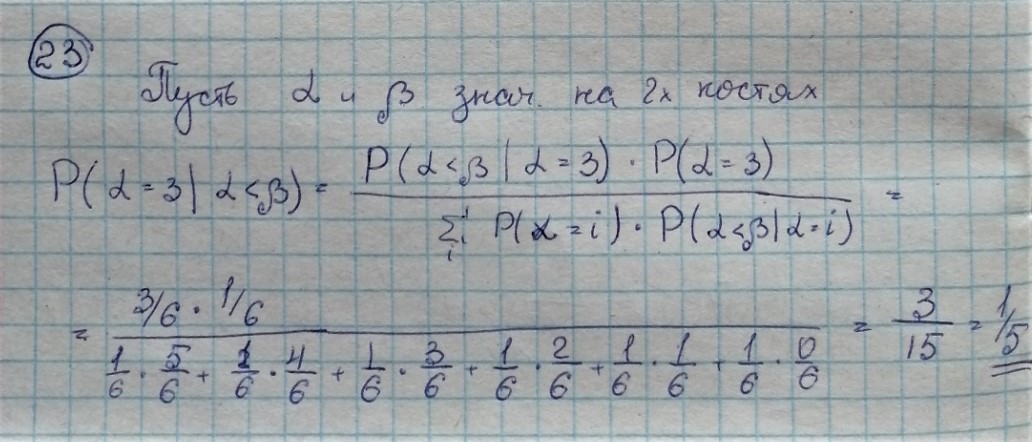 23
Пусть α и β знач. на 2х костях
P(α=3|α<β) = P(α<β|α=3)·P(α=3) / ∑i P(α=i)·P(α<β|α=i) =
= 3/6·1/6 / 1/6·5/6 + 1/6·4/6 + 1/6·3/6 + 1/6·2/6 + 1/6·1/6 + 1/6·0/6 = 3/15 = 1/5